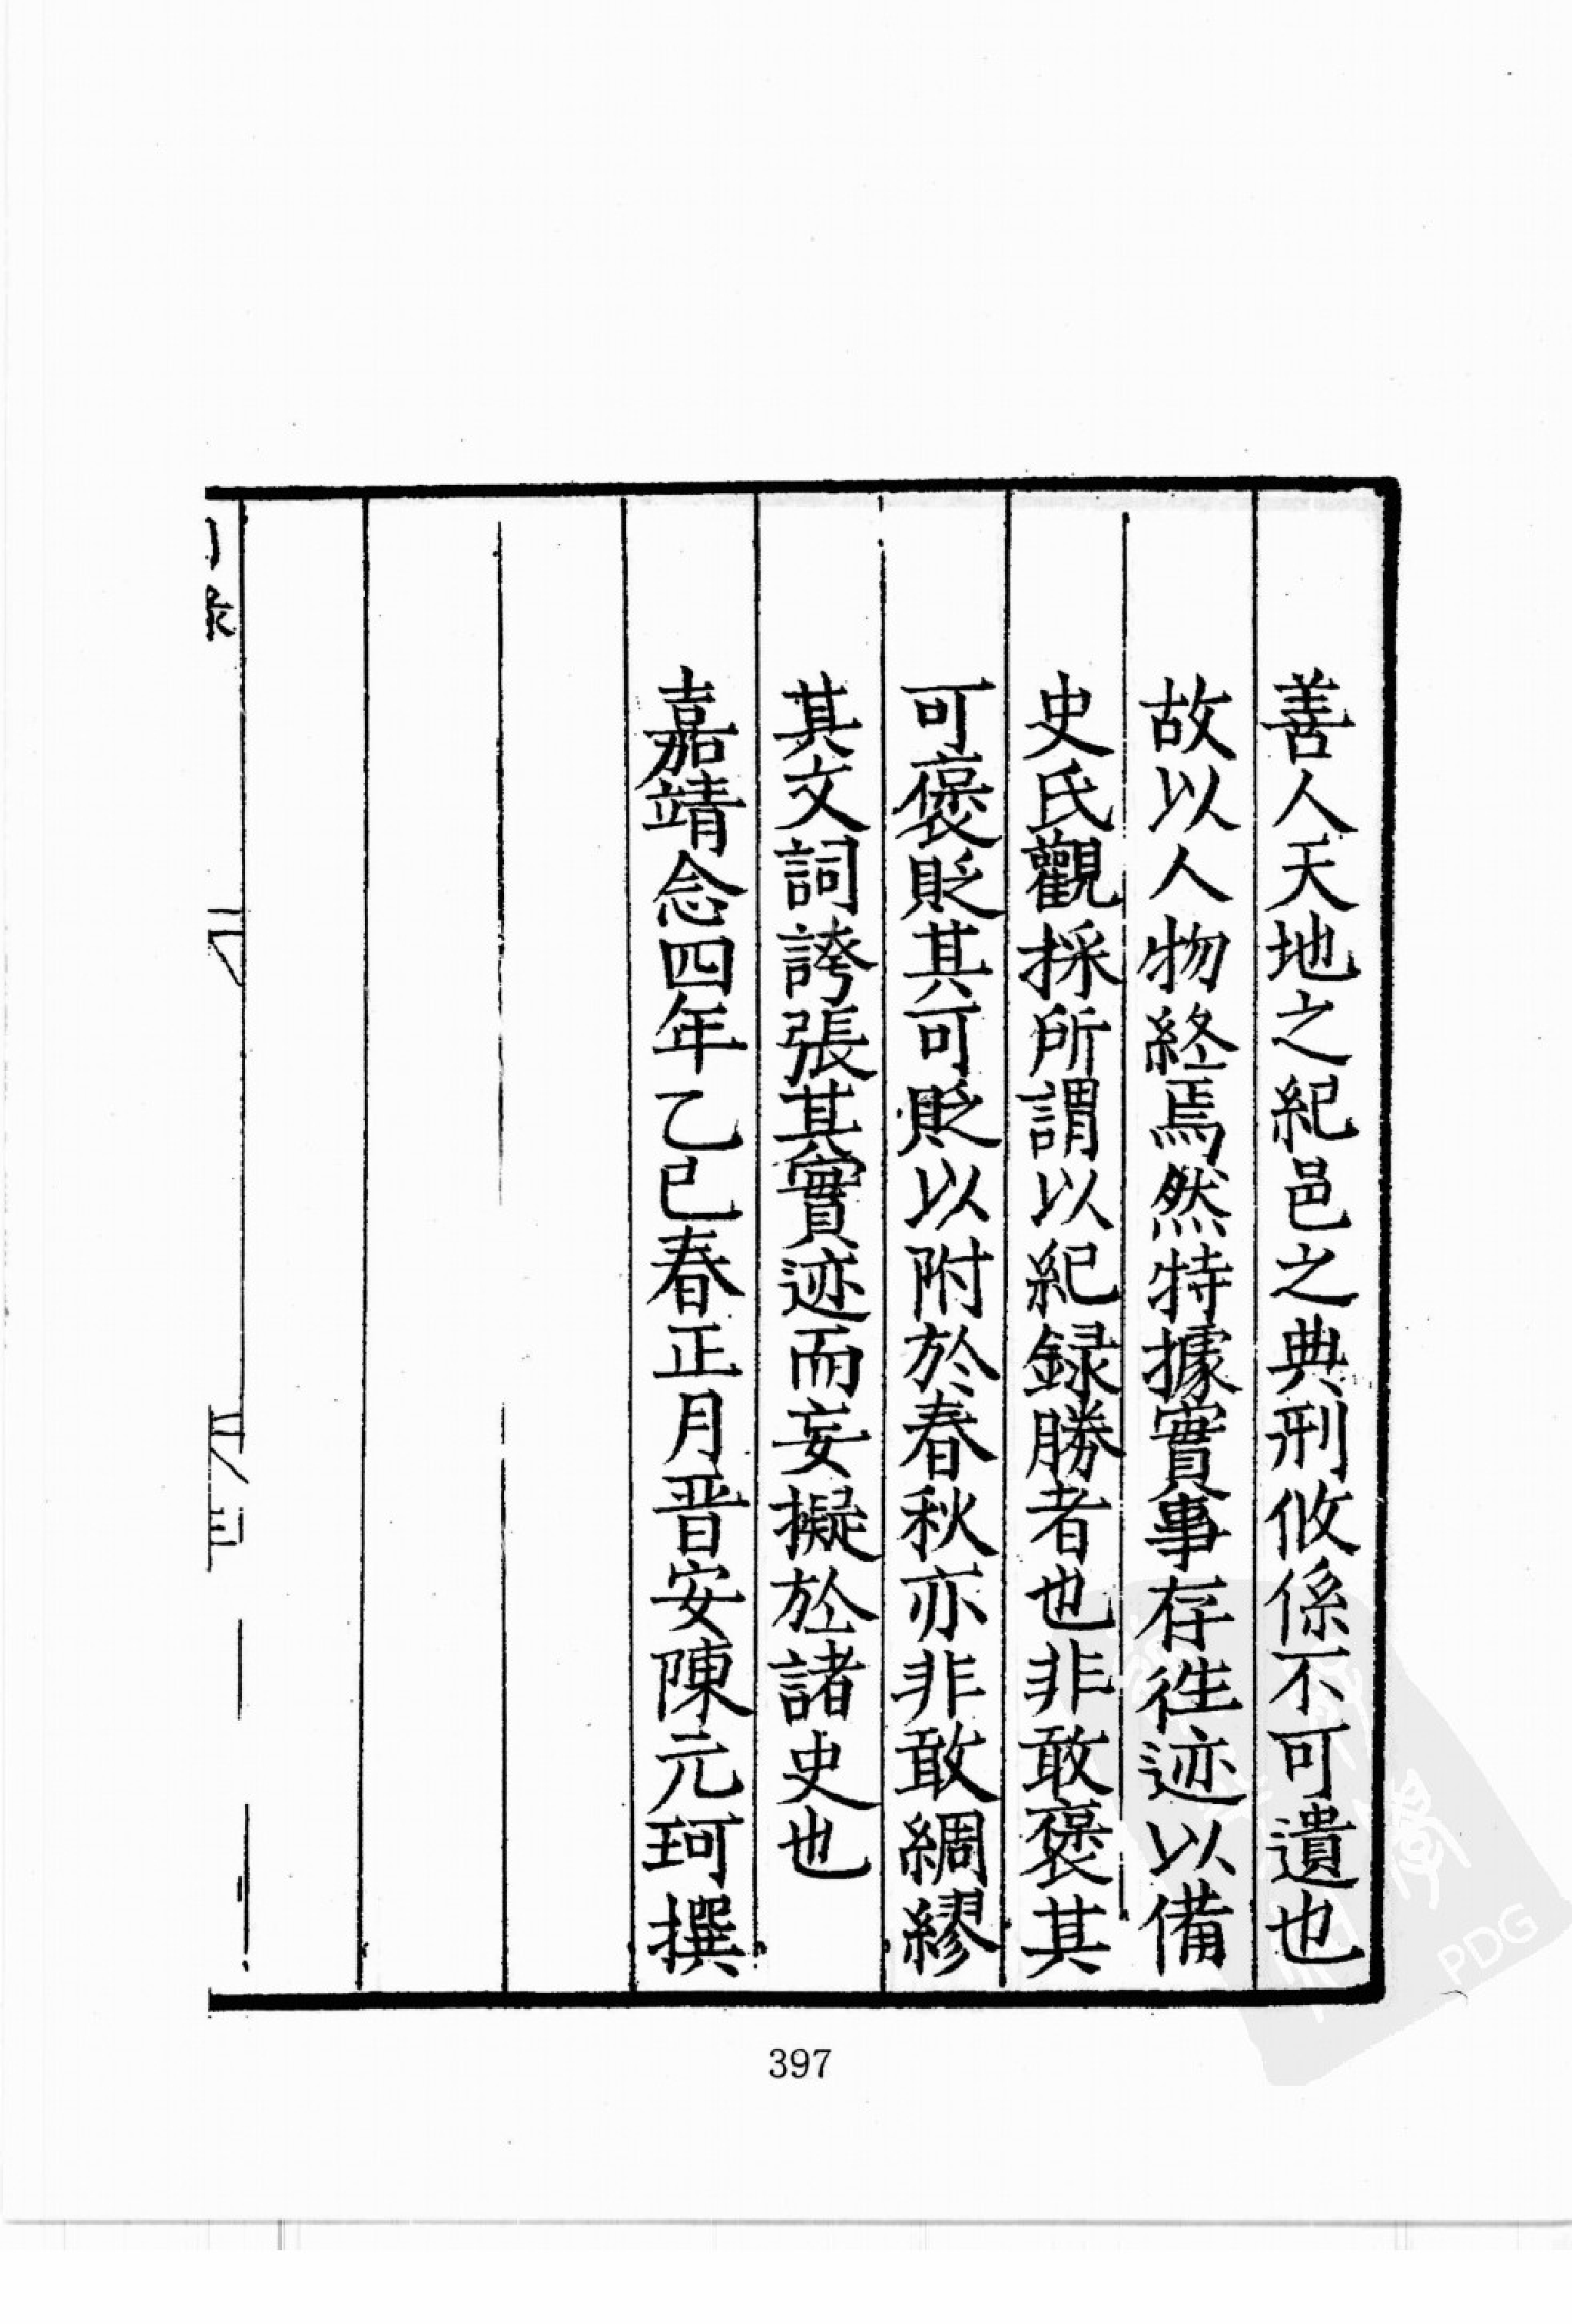 善人天地之紀邑之典刑攸係不可遺也
故以人物終焉然特據實事存徃迹以備
史氏觀採所謂以紀録勝者也非敢褒其
可褒貶其可貶以附於春秋亦非敢綢繆
其文詞誇張其實迹而妄擬於諸史也
嘉靖念四年乙巳春正月晋安陳元珂撰
397
PDG